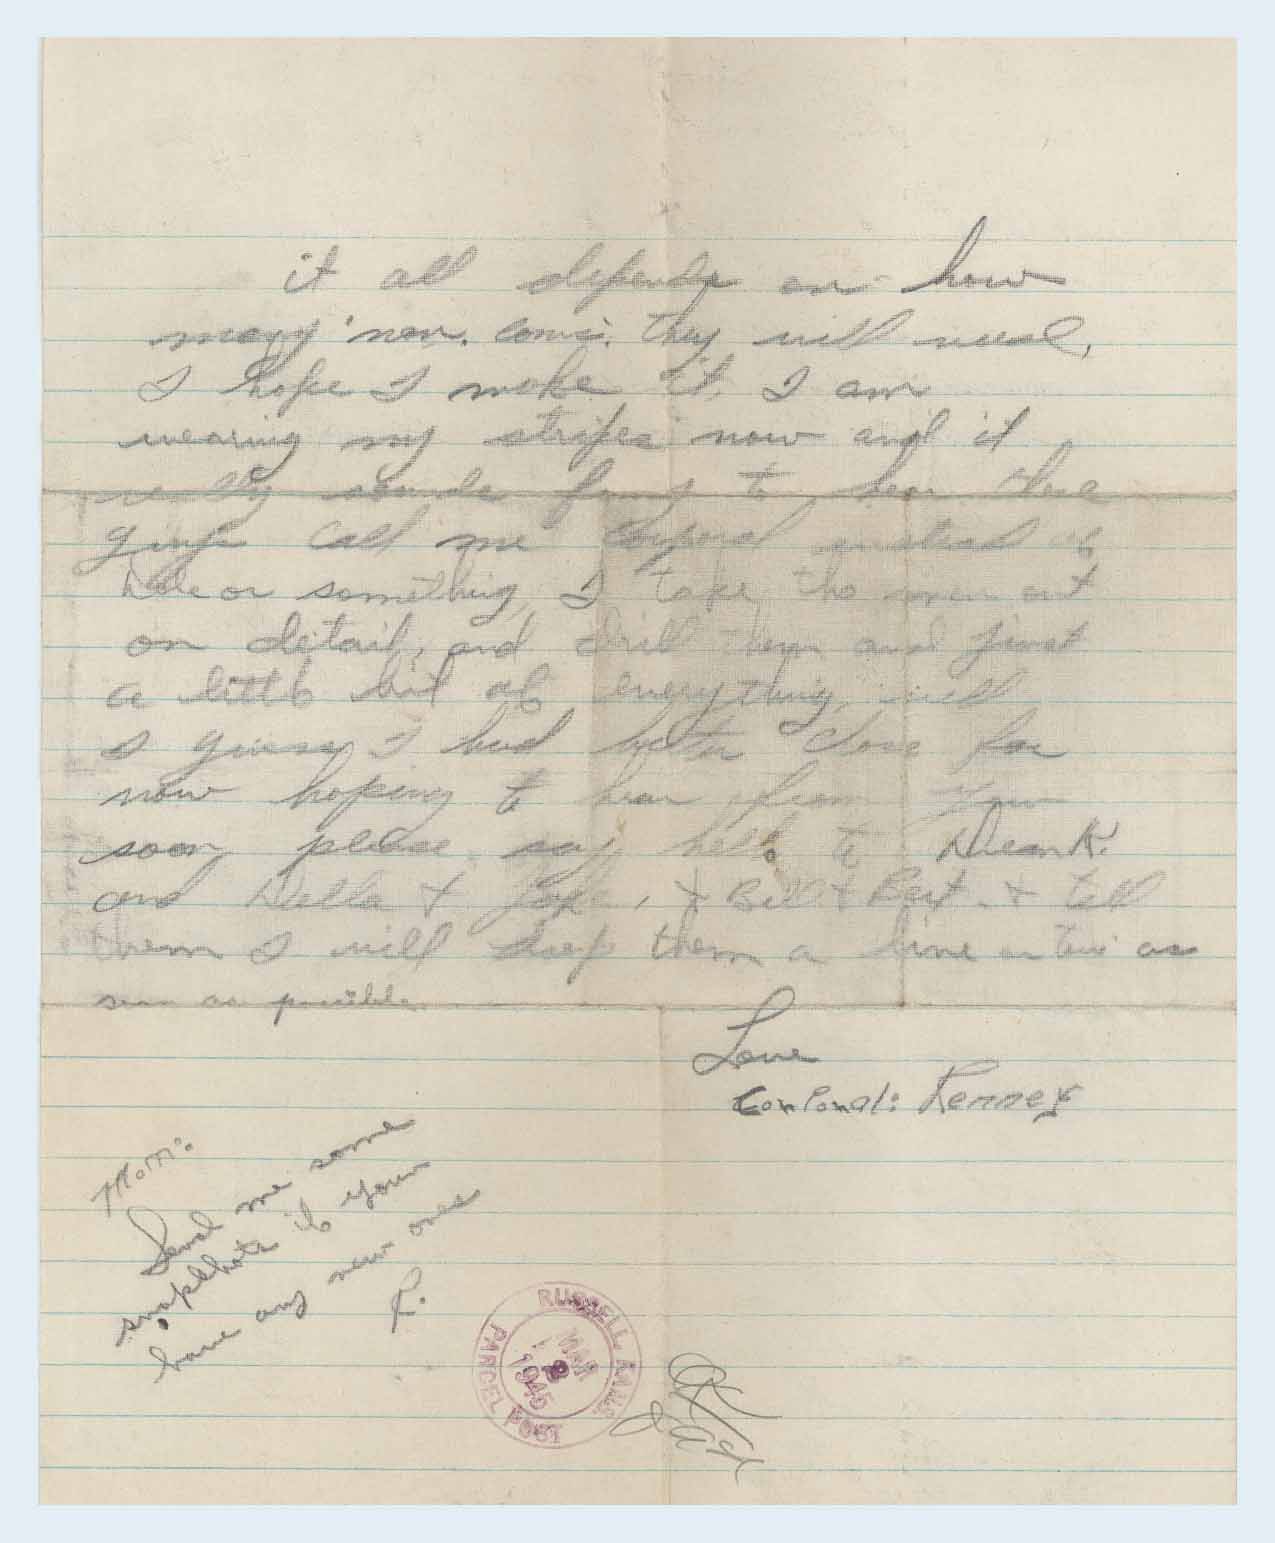 it all depends on how
many non. comis. they will need,
I hope I make it, I am
wearing my stripes now and it
really sounds funny to hear these
guys call me Corporal instead of
or something, I take the men out
on detail, and drill them and just
a little bit of everything, well
I guess I had better close for
now hoping to hear from you
soon, please say hello to
and Della + + Bill + Bert. + tell
them I will drop them a line or two as
soon as possible.
Love
Corporal: Kenney
Mom:
Send me some
snapshots if you
have any new ones
R.
RUSSELL, KANS.
MAR
1945
PARCEL POST
OK